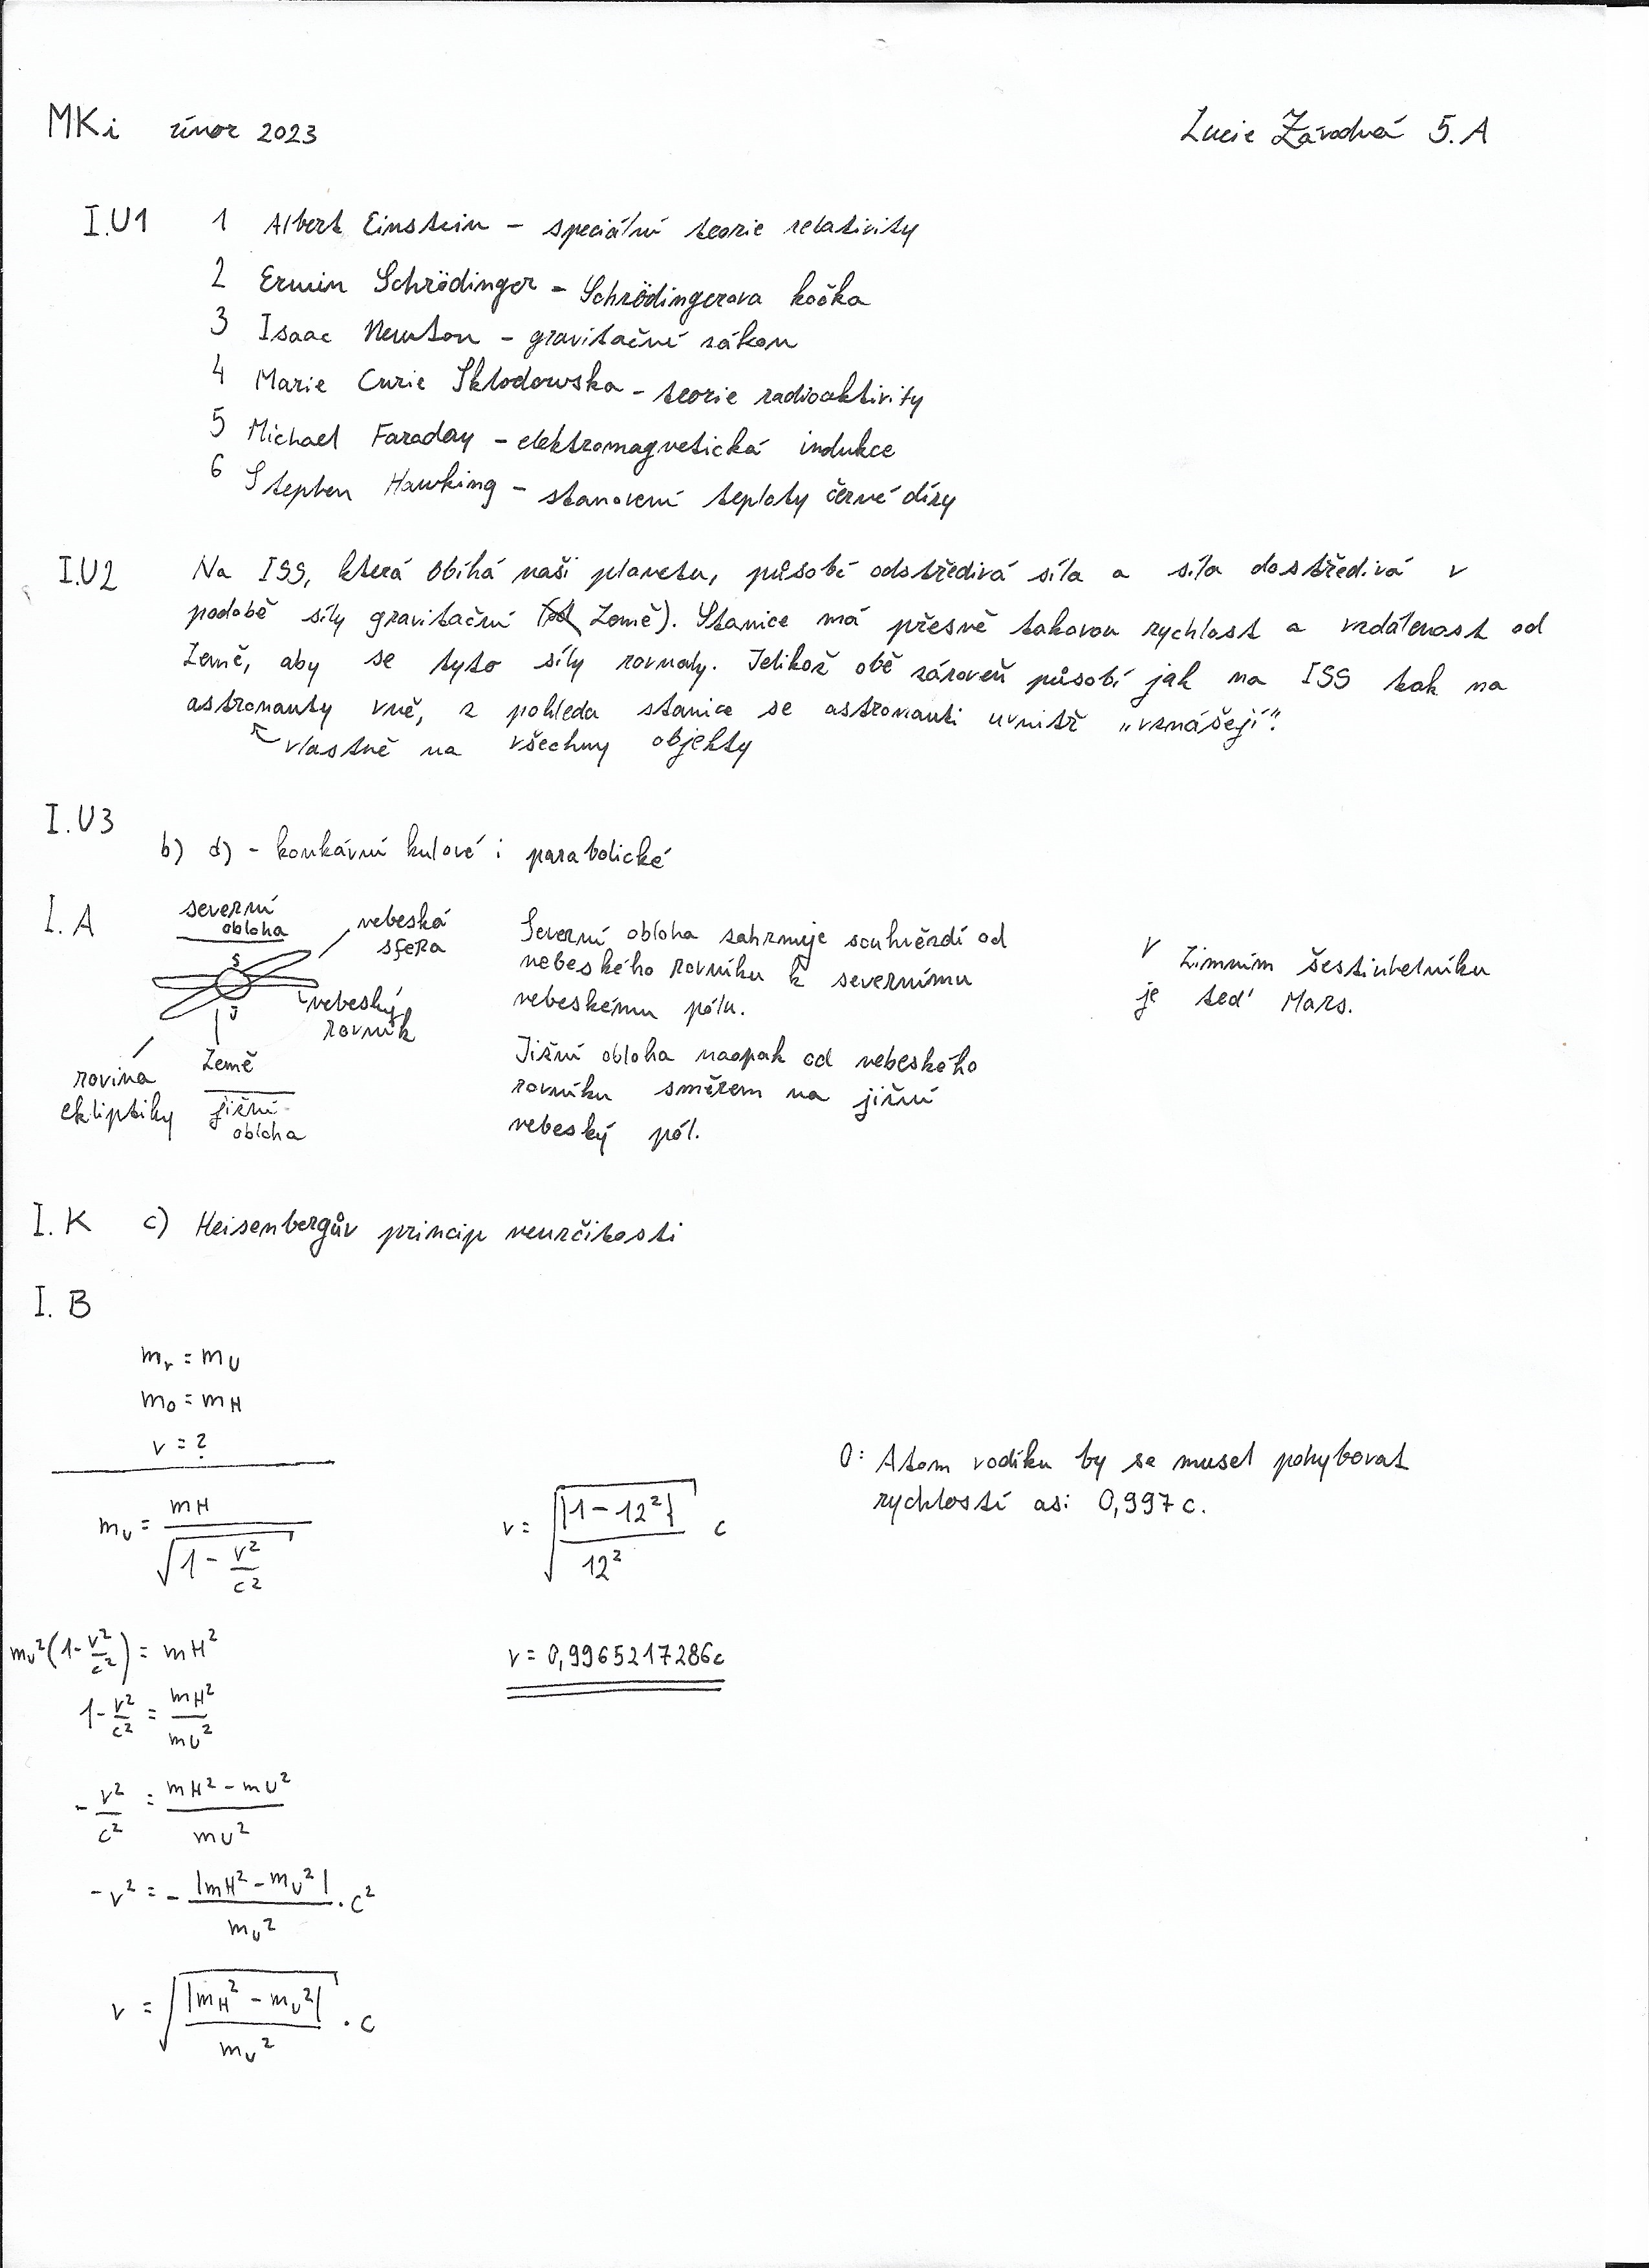 MKi únor 2023
Lucie Závodná 5.A
I.U1 1 Albert Einstein – speciální teorie relativity
2 Erwin Schrödinger – Schrödingerova kočka
3 Isaac Newton – gravitační zákon
4 Marie Curie Skłodowska – teorie radioaktivity
5 Michael Faraday – elektromagnetická indukce
6 Stephen Hawking – stanovení teploty černé díry
I.U2 Na ISS, která obíhá naši planetu, působí odstředivá síla a síla dostředivá v
podobě síly gravitační Země). Stanice má přesně takovou rychlost a vzdálenost od
Země, aby se tyto síly rovnaly. Jelikož obě zároveň působí jak na ISS tak na
astronauty vně, z pohledu stanice se astronauti uvnitř „vznášejí“.
vlastně na všechny objekty
I.U3
b) d) – konkávní kulové i parabolické
I.A
severní
obloha
nebeská
sféra
S
J
nebeský
rovník
Země
rovina
ekliptiky
jižní
obloha
Severní obloha zahrnuje souhvězdí od
nebeského rovníku k severnímu
nebeskému pólu.
Jižní obloha naopak od nebeského
rovníku směrem na jižní
nebeský pól.
V Zimním šestiúhelníku
je teď Mars.
I.K c) Heisenbergův princip neurčitosti
I.B
m_r = m_U
m_0 = m_H
v = ?
m_U = m_H / √(1 - v²/c²)
m_U²(1 - v²/c²) = m_H²
1 - v²/c² = m_H²/m_U²
- v²/c² = (m_H² - m_U²)/m_U²
- v² = - |m_H² - m_U²|/m_U² · c²
v = √(|m_H² - m_U²|/m_U²) · c
v = √(|1 - 12²|/12²) c
v = 0,9965217286c
O: Atom vodíku by se musel pohybovat
rychlostí asi 0,997 c.